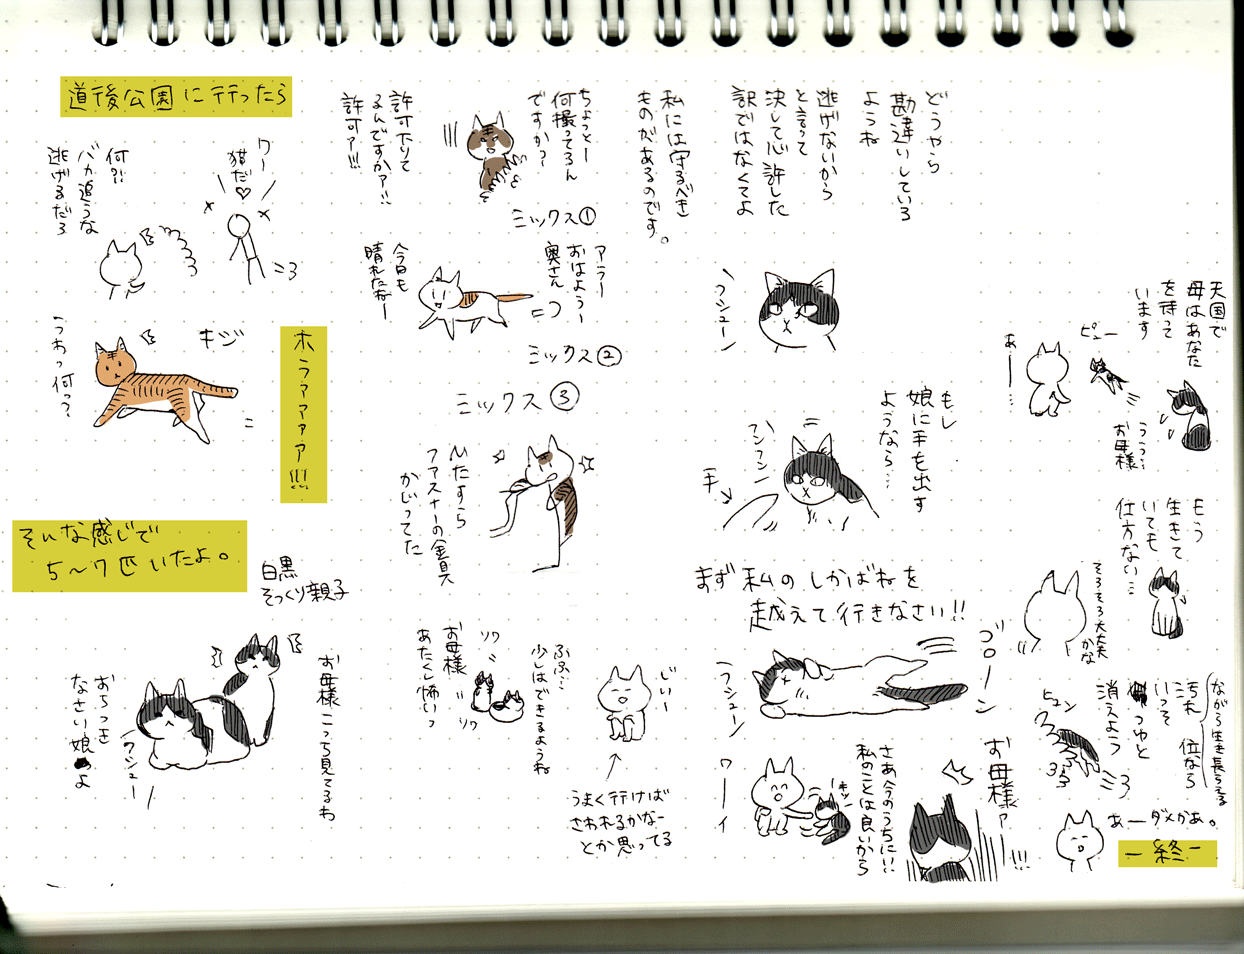 道後公園に行ったら
ワー
猫だ♡
何?!
バカ追うな
逃げるだろ
ホラァァァァ!!!
キジ
うわっ何っ?
そんな感じで
5〜7匹いたよ。
白黒
そっくり親子
お母様こっち見てるわ
おちつき
なさい娘よ
フシュー
ちょっとー
何撮ってるん
ですか?
許可下りて
るんですかァ?!
許可ァ!!!
ミックス①
アラー
おはようー
奥さん
今日も
晴れたねー
ミックス②
ミックス③
ひたすら
ファスナーの金具
かじってた
お母様
あたくし怖いっ
ソワ
ソワ
ふふ…
少しはできるようね
じいー
うまく行けば
さわれるかなー
とか思ってる
どうやら
勘違いしている
ようね
逃げないから
と言って
決して心許した
訳ではなくてよ
私には守るべき
ものがあるのです。
フシューン
もし
娘に手を出す
ようなら…
フンフン
手
まず私のしかばねを
越えて行きなさい!!
ゴローン
フシューン
さあ今のうちに!!
私のことは良いから
ワーイ
お母様ァ
!!!
天国で
母はあなた
を待って
います
ピュー
あー…
ううう…
お母様
もう
生きて
いても
仕方ない…
そろそろ大丈夫
かな
ながら生き長らえる
汚れ
位なら
いっそ
つゆと
消えよう
ピュン
あーダメかぁ。
－終－